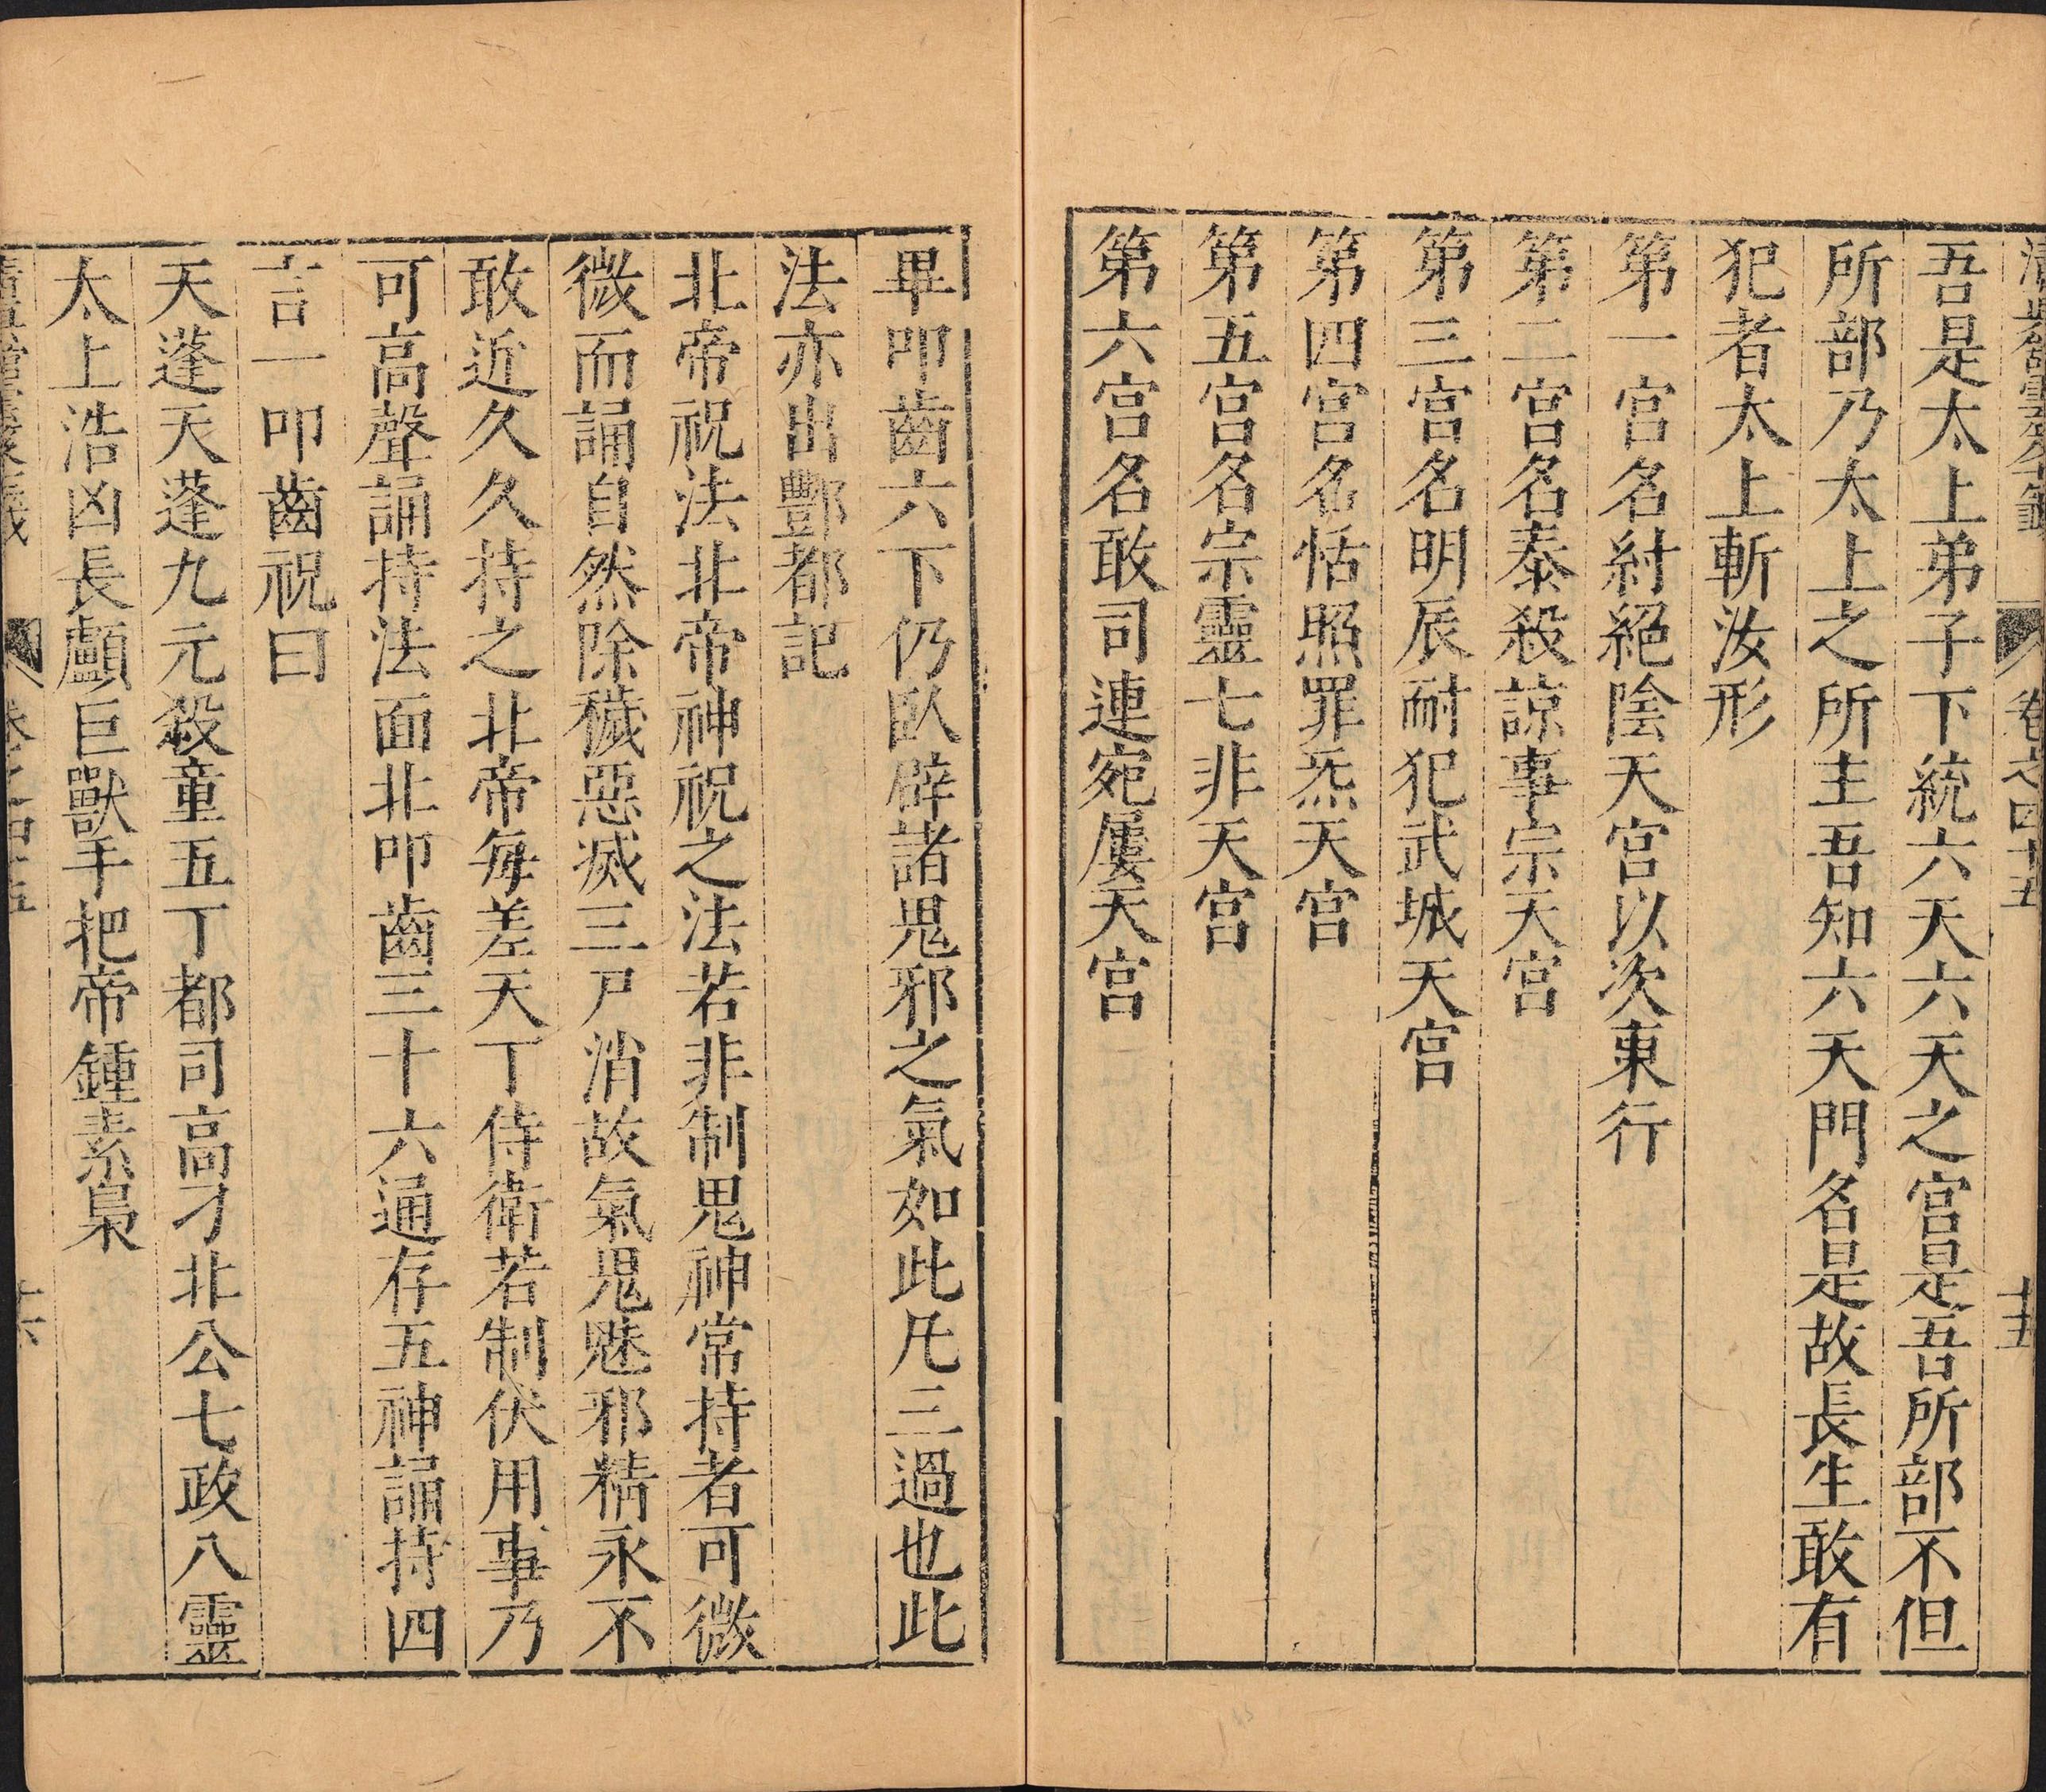 卷之四十五
十五
吾是太上弟子下統六天六天之宮是吾所部不但
所部乃太上之所主吾知六天門名是故長生敢有
犯者太上斬汝形
第一宮名紂絕陰天宮以次東行
第二宮名泰殺諒事宗天宮
第三宮名明辰耐犯武城天宮
第四宮名恬照罪炁天宮
第五宮名宗靈七非天宮
第六宮名敢司連宛屢天宮
畢叩齒六下仍臥辟諸鬼邪之氣如此凡三過也此
法亦出酆都記
北帝祝法北帝神祝之法若非制鬼神常持者可微
微而誦自然除穢惡滅三尸消故氣鬼魅邪精永不
敢近久久持之北帝每差天丁侍衛若制伏用事乃
可高聲誦持法面北叩齒三十六通存五神誦持四
言一叩齒祝曰
天蓬天蓬九元殺童五丁都司高刁非公七政八靈
太上浩凶長顱巨獸手把帝鍾素梟